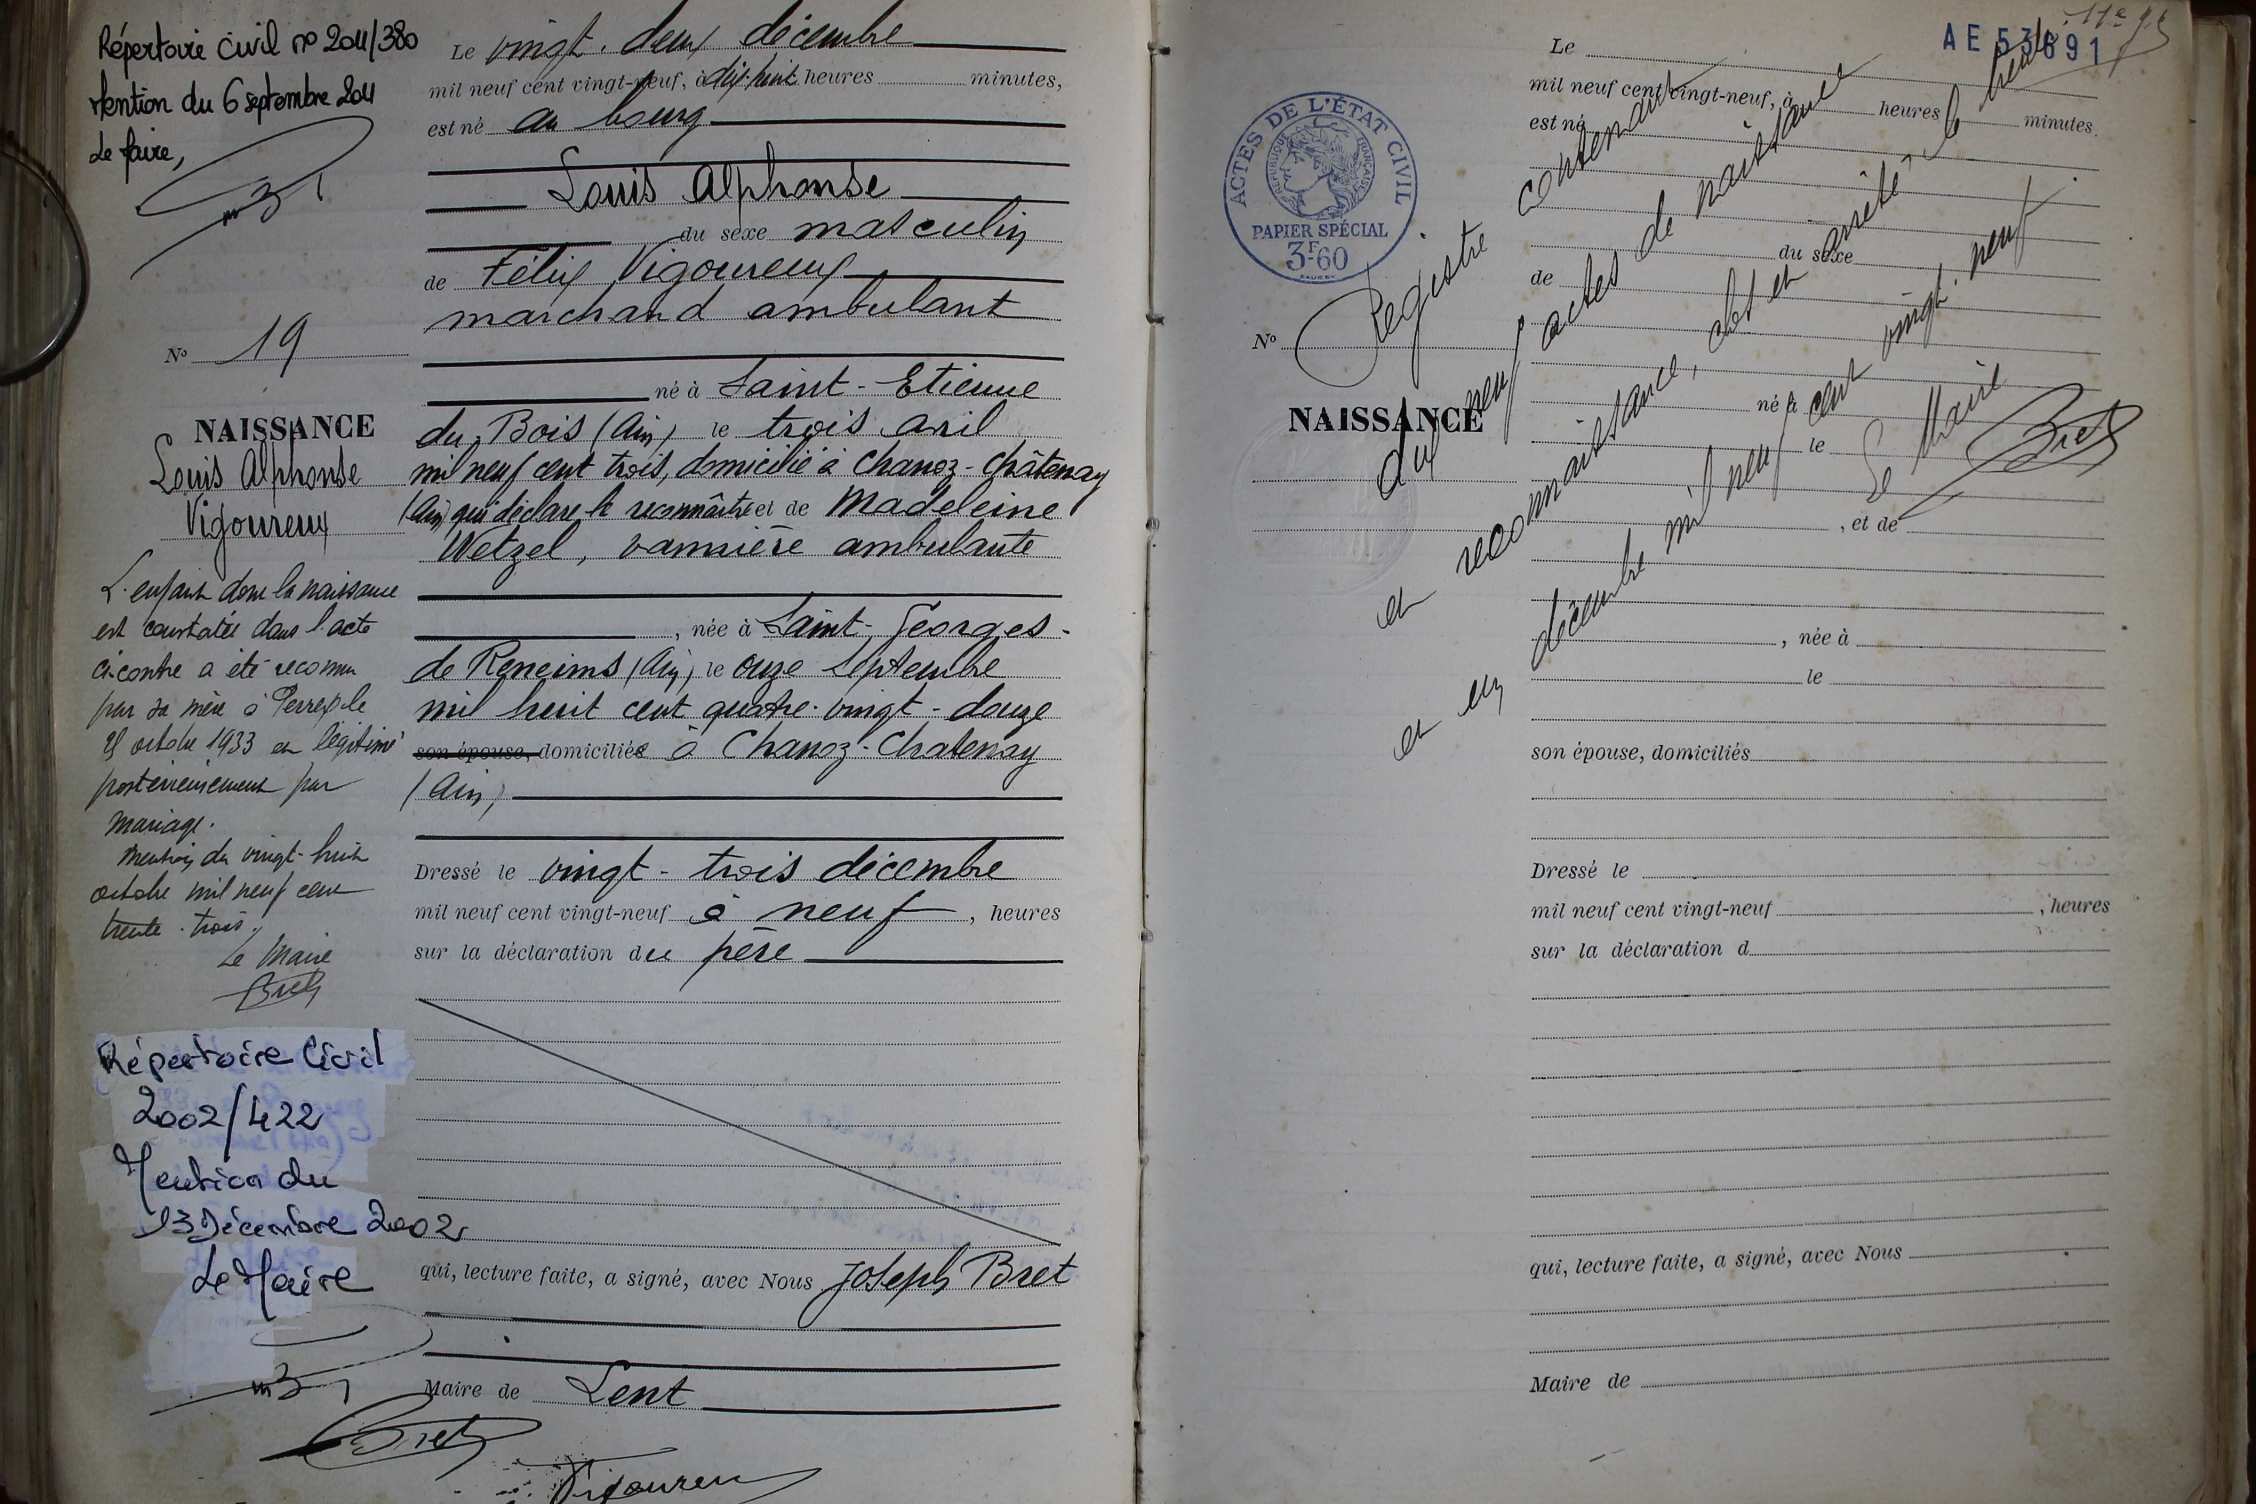 Répertoire Civil nº 2011/380
Mention du 6 septembre 2011
Le Maire,
Nº 19
NAISSANCE
Louis Alphonse
Vigoureux
L'enfant dont la naissance
est constatée dans l'acte
ci-contre a été reconnu
par sa mère à Perrex le
octobre 1933 et légitimé
postérieurement par
mariage.
Mention du vingt-huit
octobre mil neuf cent
trente-trois.
Le Maire
Bret
Répertoire Civil
2002/422
Mention du
13 Décembre 2002
Le Maire
Le vingt-deux décembre
mil neuf cent vingt-neuf, à dix-huit heures minutes,
est né au bourg
Louis Alphonse
du sexe masculin
de Félix Vigoureux
marchand ambulant
né à Saint-Etienne
du Bois (Ain) le trois avril
mil neuf cent trois, domicilié à Chanoz-Châtenay
(Ain) qui déclare le reconnaître et de Madeleine
Wetzel, vannière ambulante
, née à Saint-Georges-
de Reneins (Ain), le onze septembre
mil huit cent quatre-vingt-douze
son épouse, domiciliée à Chanoz-Chatenay
(Ain)
Dressé le vingt-trois décembre
mil neuf cent vingt-neuf à neuf, heures
sur la déclaration du père
qui, lecture faite, a signé, avec Nous Joseph Bret
Maire de Lent
Bret
Vigoureux
AE 53691
ACTES DE L'ÉTAT CIVIL
RÉPUBLIQUE FRANÇAISE
PAPIER SPÉCIAL
3F60
Nº
NAISSANCE
Le
mil neuf cent vingt-neuf, à heures minutes.
est né
du sexe
de
né à
le
, et de
, née à
le
son épouse, domiciliés
Dressé le
mil neuf cent vingt-neuf , heures
sur la déclaration d
qui, lecture faite, a signé, avec Nous
Maire de
Registre contenant
dix neuf actes de naissance
et reconnaissance, clos et arrêté le trente
et un décembre mil neuf cent vingt-neuf.
Le Maire
Bret